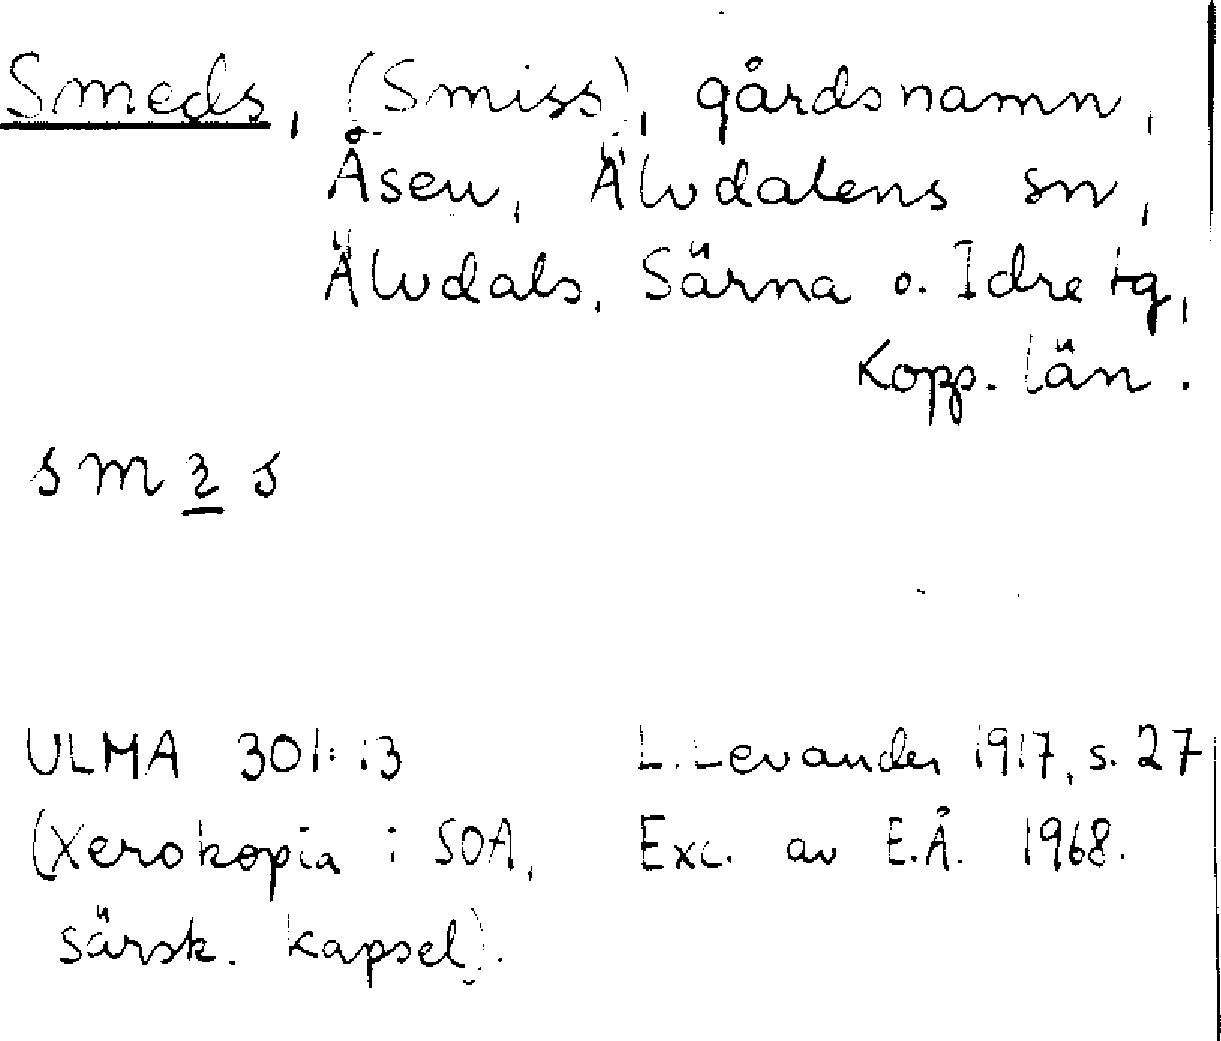 Smeds, (Smiss), gårdsnamn,
Åsen, Älvdalens sn,
Älvdals, Särna o. Idre tg,
Kopp. län.
ULMA 301:13 L. Levander 1917, s. 27
(Xerokopia i SOA, Exc. av E.Å. 1968.
särsk. kapsel).